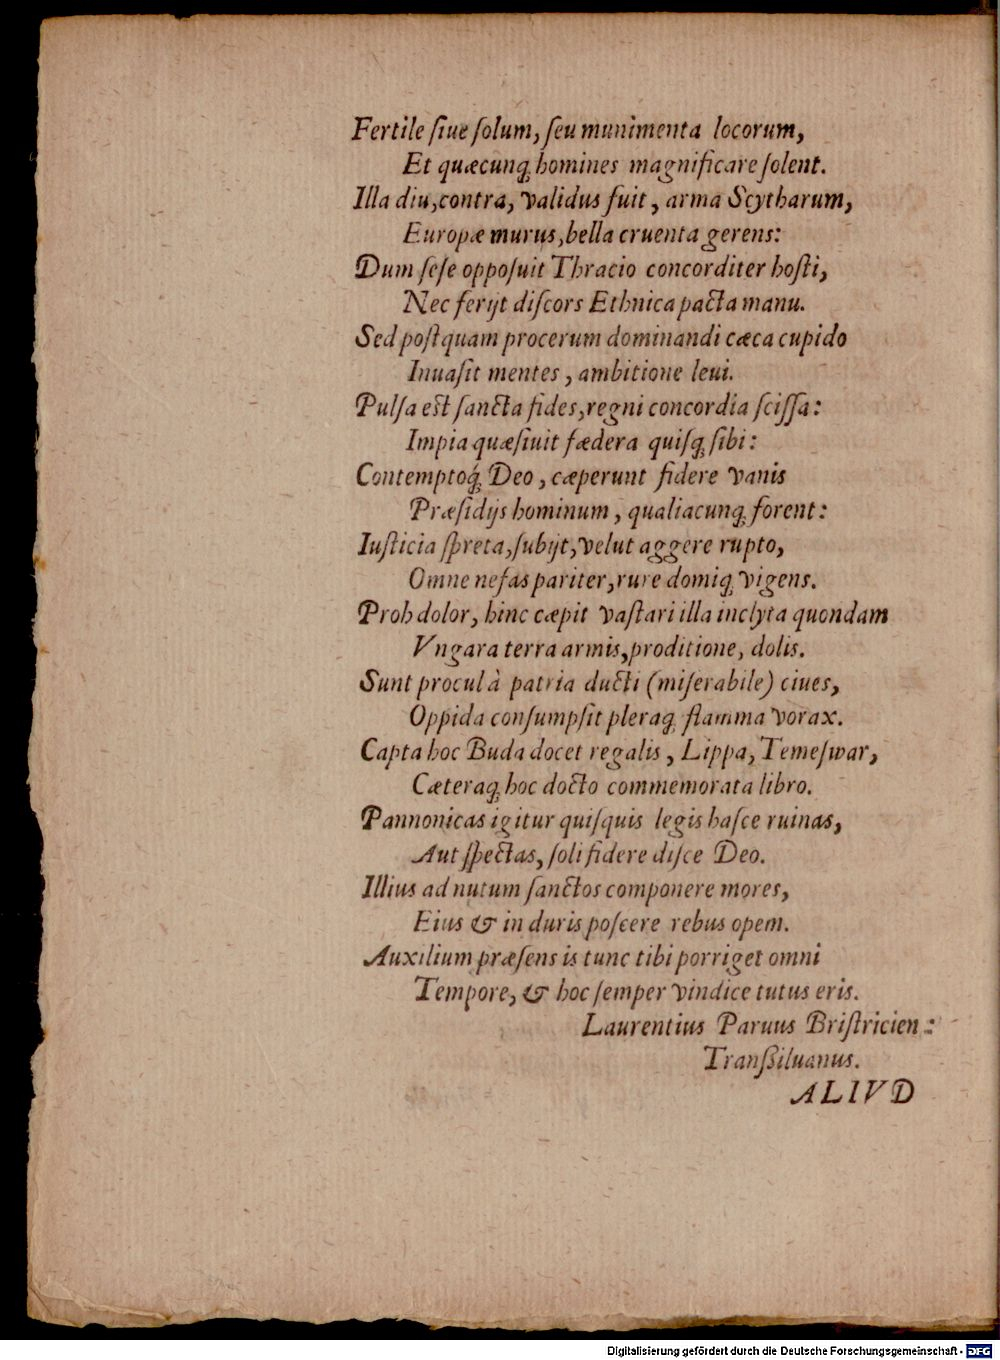 Fertile ſiue ſolum, ſeu munimenta locorum,
Et quæcunq; homines magnificare ſolent.
Illa diu, contra, validus fuit, arma Scytharum,
Europæ murus, bella cruenta gerens:
Dum ſeſe oppoſuit Thracio concorditer hoſti,
Nec ferijt diſcors Ethnica pacta manu.
Sed poſtquam procerum dominandi cæca cupido
Inuaſit mentes, ambitione leui.
Pulſa eſt ſancta fides, regni concordia ſciſſa:
Impia quæſiuit fædera quiſq; ſibi:
Contemptoq́; Deo, cæperunt fidere vanis
Præſidijs hominum, qualiacunq; forent:
Iuſticia ſpreta, ſubijt, velut aggere rupto,
Omne nefas pariter, rure domiq; vigens.
Proh dolor, hinc cæpit vaſtari illa inclyta quondam
Vngara terra armis, proditione, dolis.
Sunt procul à patria ducti (miſerabile) ciues,
Oppida conſumpſit pleraq; flamma vorax.
Capta hoc Buda docet regalis, Lippa, Temeſwar,
Cæteraq; hoc docto commemorata libro.
Pannonicas igitur quiſquis legis haſce ruinas,
Aut ſpectas, ſoli fidere diſce Deo.
Illius ad nutum ſanctos componere mores,
Eius & in duris poſcere rebus opem.
Auxilium præſens is tunc tibi porriget omni
Tempore, & hoc ſemper vindice tutus eris.
Laurentius Paruus Briſtricien:
Tranſßiluanus.
ALIVD
Digitalisierung gefördert durch die Deutsche Forschungsgemeinschaft - DFG